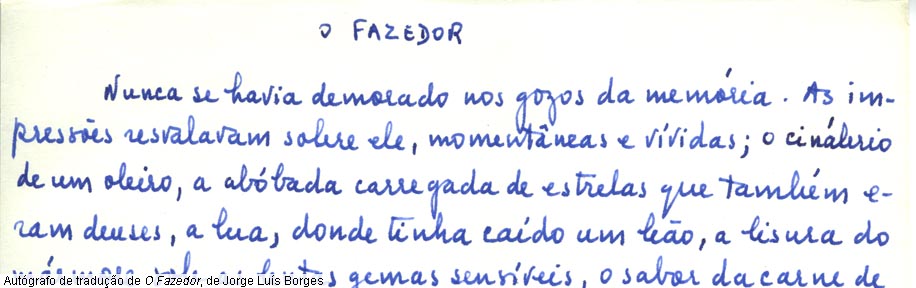 O FAZEDOR
Nunca se havia demorado nos gozos da memória. As im-
pressões resvalavam sobre ele, momentâneas e vívidas; o cinábrio
de um oleiro, a abóbada carregada de estrelas que também e-
ram deuses, a lua, donde tinha caído um leão, a lisura do
gemas sensíveis, o sabor da carne de
Autógrafo de tradução de O Fazedor, de Jorge Luís Borges